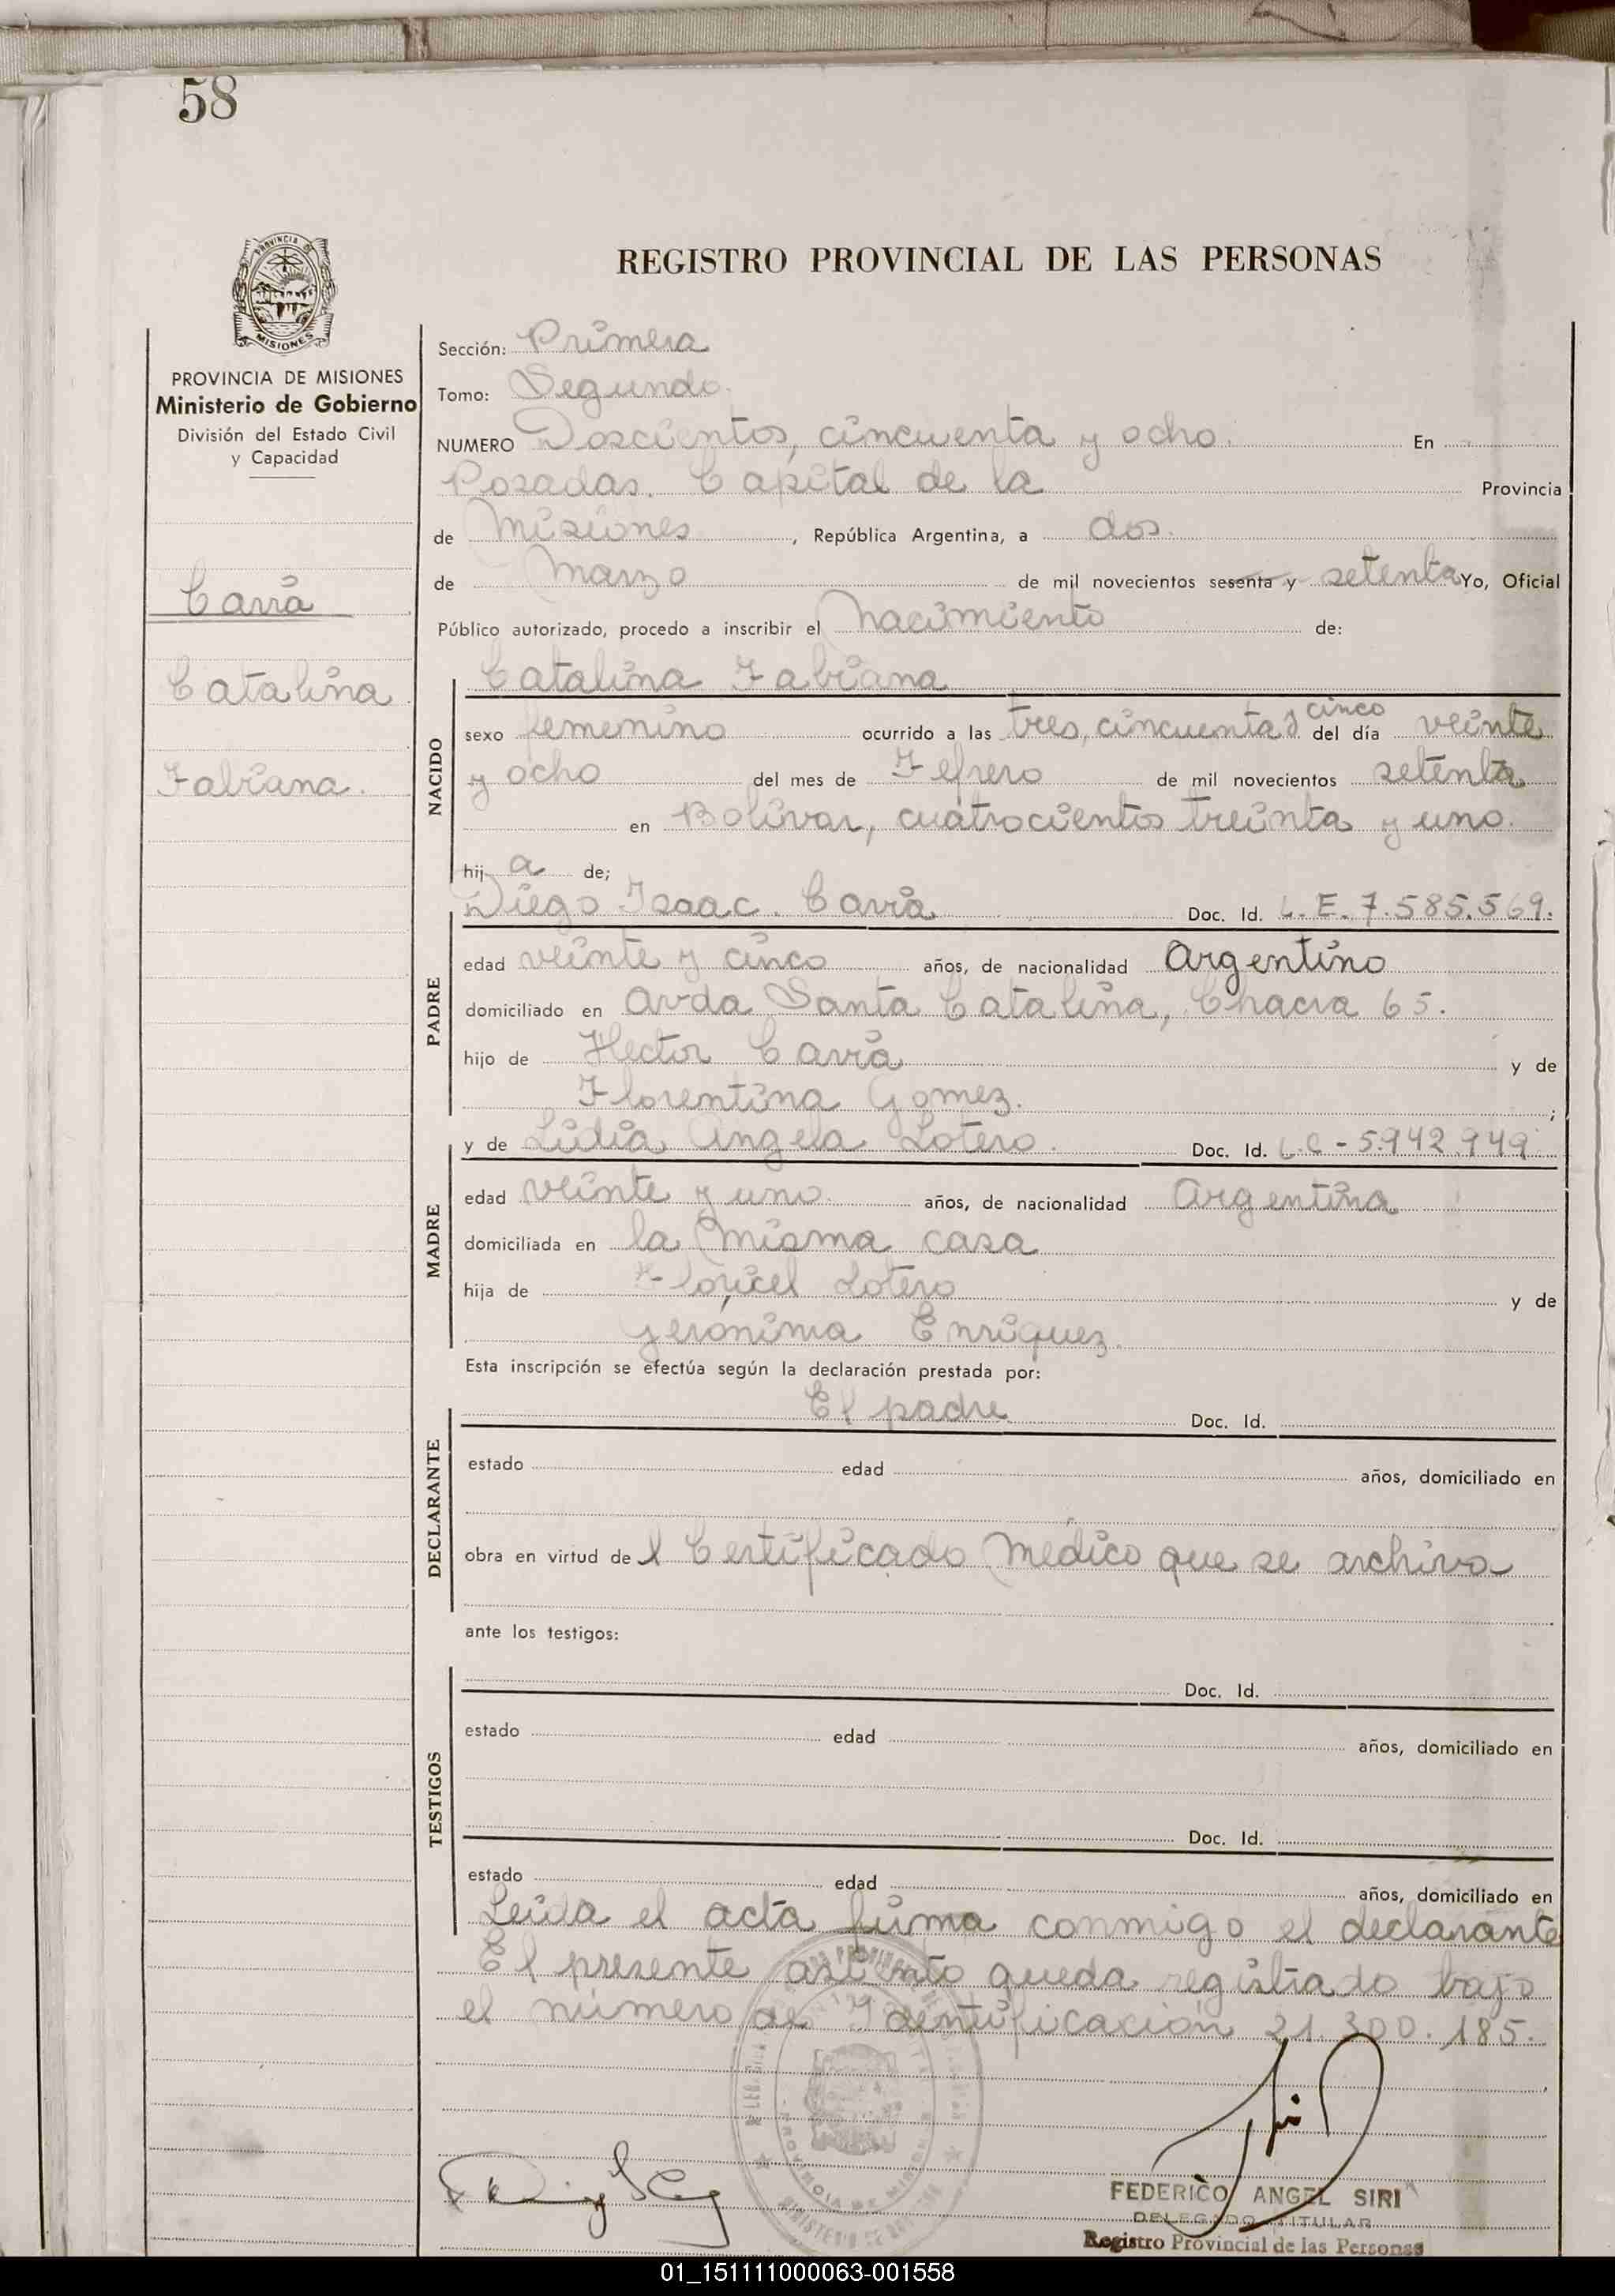 58
REGISTRO PROVINCIAL DE LAS PERSONAS
MISIONES
PROVINCIA DE MISIONES
Ministerio de Gobierno
División del Estado Civil
y Capacidad
Catalina
Fabiana.
Sección: Primera
Tomo: Segundo.
NUMERO Doscientos, cincuenta y ocho. En
Posadas. Capital de la Provincia
de Misiones, República Argentina, a dos.
de Marzo de mil novecientos sesenta y setenta Yo, Oficial
Público autorizado, procedo a inscribir el Nacimiento de:
NACIDO
Catalina Fabiana
cinco
sexo femenino ocurrido a las tres, cincuenta y del día veinte
y ocho del mes de Febrero de mil novecientos setenta
en Bolívar, cuatrocientos treinta y uno.
hij a de;
PADRE
Diego Isaac. Doc. Id. L.E. 7.585.569.
edad veinte y cinco años, de nacionalidad Argentino
domiciliado en Avda Santa Catalina, Chacra 65.
hijo de Hector y de
Florentina Gomez. ;
MADRE
y de Lidia Angela Lotero. Doc. Id. L.C - 5.942.949
edad veinte y uno. años, de nacionalidad Argentina
domiciliada en la misma casa
hija de Lotero y de
Geronima Enriquez.
Esta inscripción se efectúa según la declaración prestada por:
DECLARANTE
El padre Doc. Id.
estado edad años, domiciliado en
obra en virtud de l Certificado Médico que se archiva
ante los testigos:
TESTIGOS
Doc. Id.
estado edad años, domiciliado en
Doc. Id.
estado edad años, domiciliado en
Leida el acta firma conmigo el declarante
El presente asiento queda registrado bajo
el número de Identificación 21.300.185.
FEDERICO ANGEL SIRI
DELEGADO TITULAR
Registro Provincial de las Personas
01_151111000063-001558